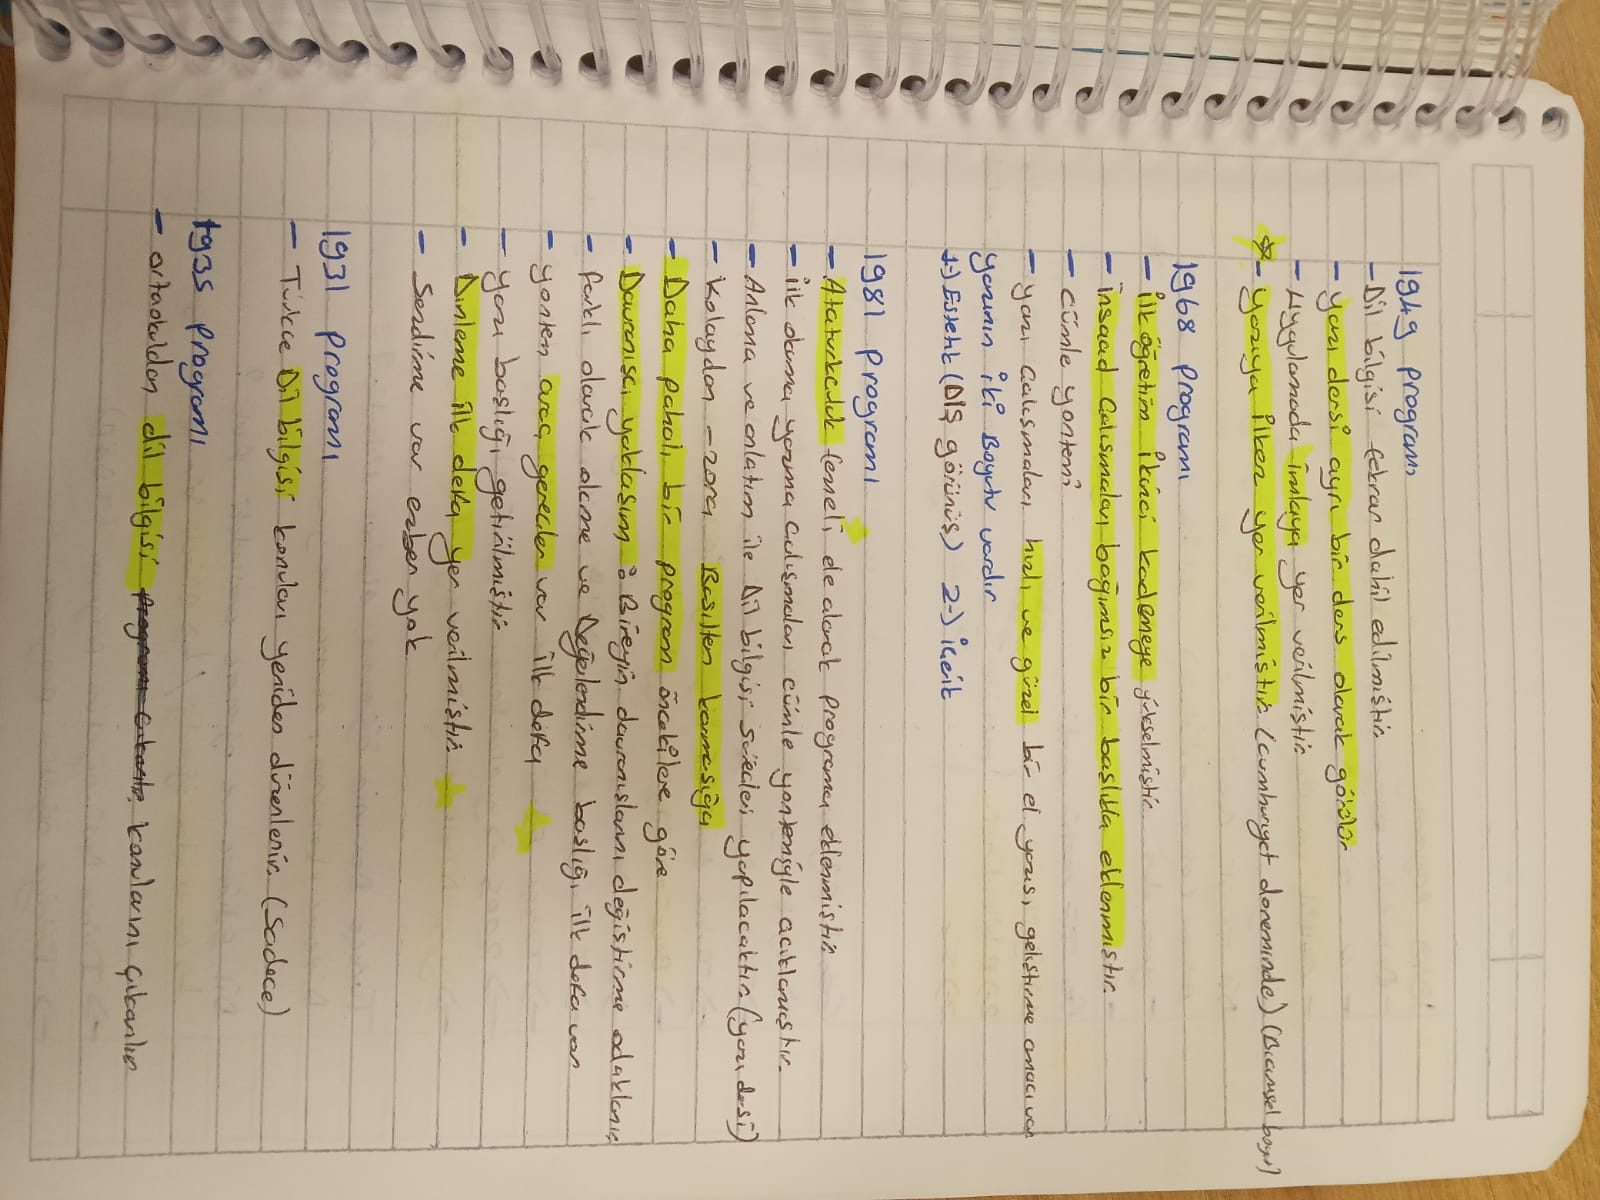 1949 program
- Dil bilgisi tekrar dahil edilmiştir.
- yazı dersi ayrı bir ders olarak görülür
- Uygulamada imlaya yer verilmiştir.
- yazıya ilken yer verilmiştir. (cumhuriyet doneminde) (Bicimsel boyut)
1968 programı
- ilk öğretim ikinci kademeye yükselmiştir.
- insaad calısmaları bağımsız bir baslıkla eklenmistir.
- cümle yontemi
- yazı calısmaları hızlı ve güzel bir el yazısı geliştirme amacı var
yazının iki Boyutu vardır
1-) Estetik (Dış görünüş) 2-) içerik
1981 programı
- Ataturkculuk temeli de alarak programa eklenmiştir.
- ilk okuma yazma calısmaları cümle yontemiyle acıklanıştır.
- Anlama ve anlatım ile Dil bilgisi surecleri yapılacaktır. (yazı dersi)
- Kolaydan - zora Basitten karmasığa
- Daha pahalı bir program öncekilere göre
- Davranıscı yaklasım : Bireyin davranıslarını değistirme odaklanır.
- Farklı olarak olcme ve Değerlendirme baslığı ilk defa var
- yontem arac gerecler var ilk defa
- yazı baslığı getirilmiştir.
- Dinleme ilk defa yer verilmiştir.
- Sezdirme var ezber yok
1931 programı
- Türkce Dil bilgisi konuları yeniden düzenlenir. (Sadece)
1935 programı
- ortaokuldan dil bilgisi konularını çıkarılır